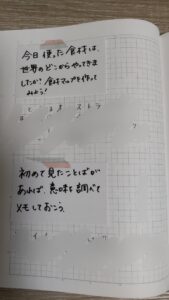 今日使った食材は、
世界のどこからやってきま
したか？食材マップを作って
みよう！
初めて見たことばが
あれば、意味を調べて
メモしておこう。